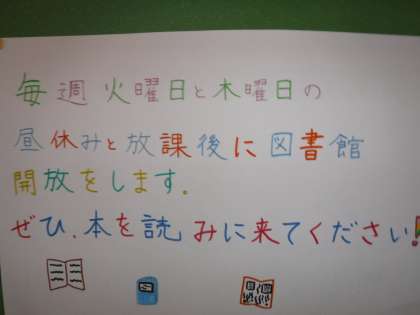 毎週火曜日と木曜日の
昼休みと放課後に図書館
開放をします。
ぜひ、本を読みに来てください!